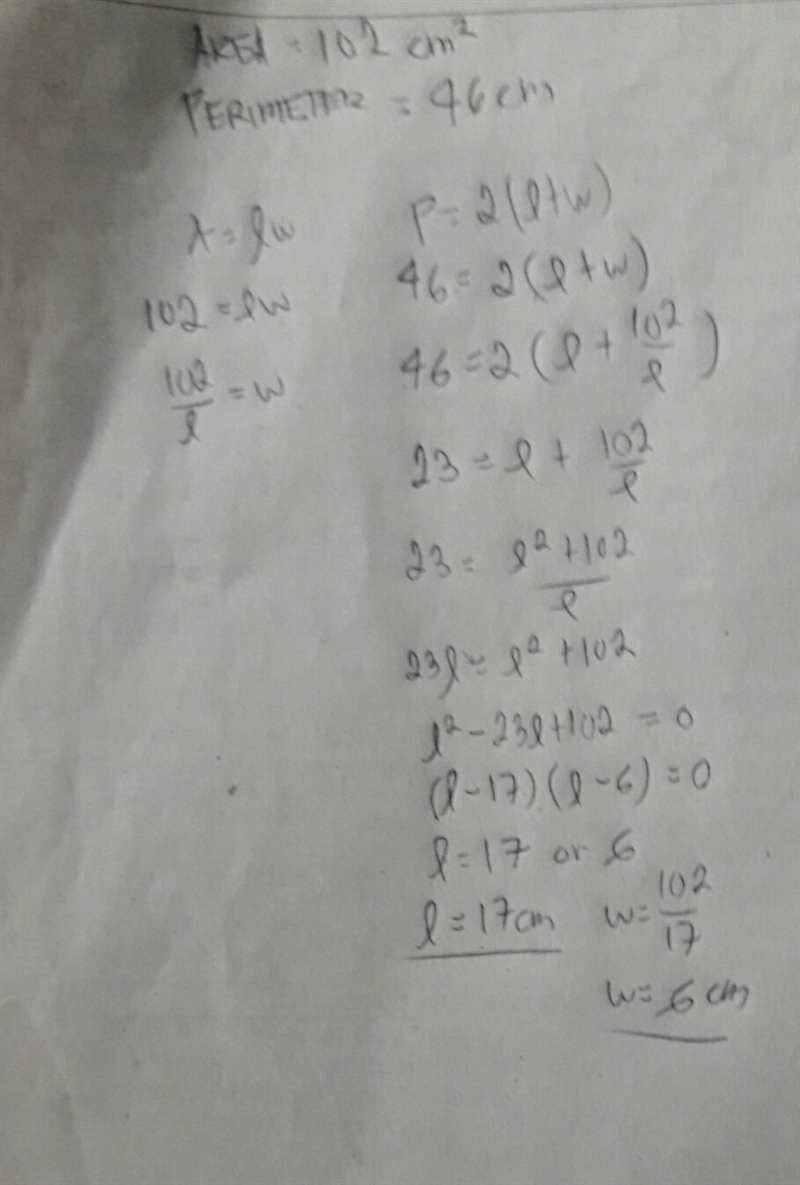 AREA = 102 cm²
PERIMETER = 46 cm
A = lw
102 = lw
102/l = w
P = 2(l+w)
46 = 2(l+w)
46 = 2(l + 102/l)
23 = l + 102/l
23 = l² + 102/l
23l = l² + 102
l² - 23l + 102 = 0
(l - 17)(l - 6) = 0
l = 17 or 6
l = 17 cm w = 102/17
w = 6 cm